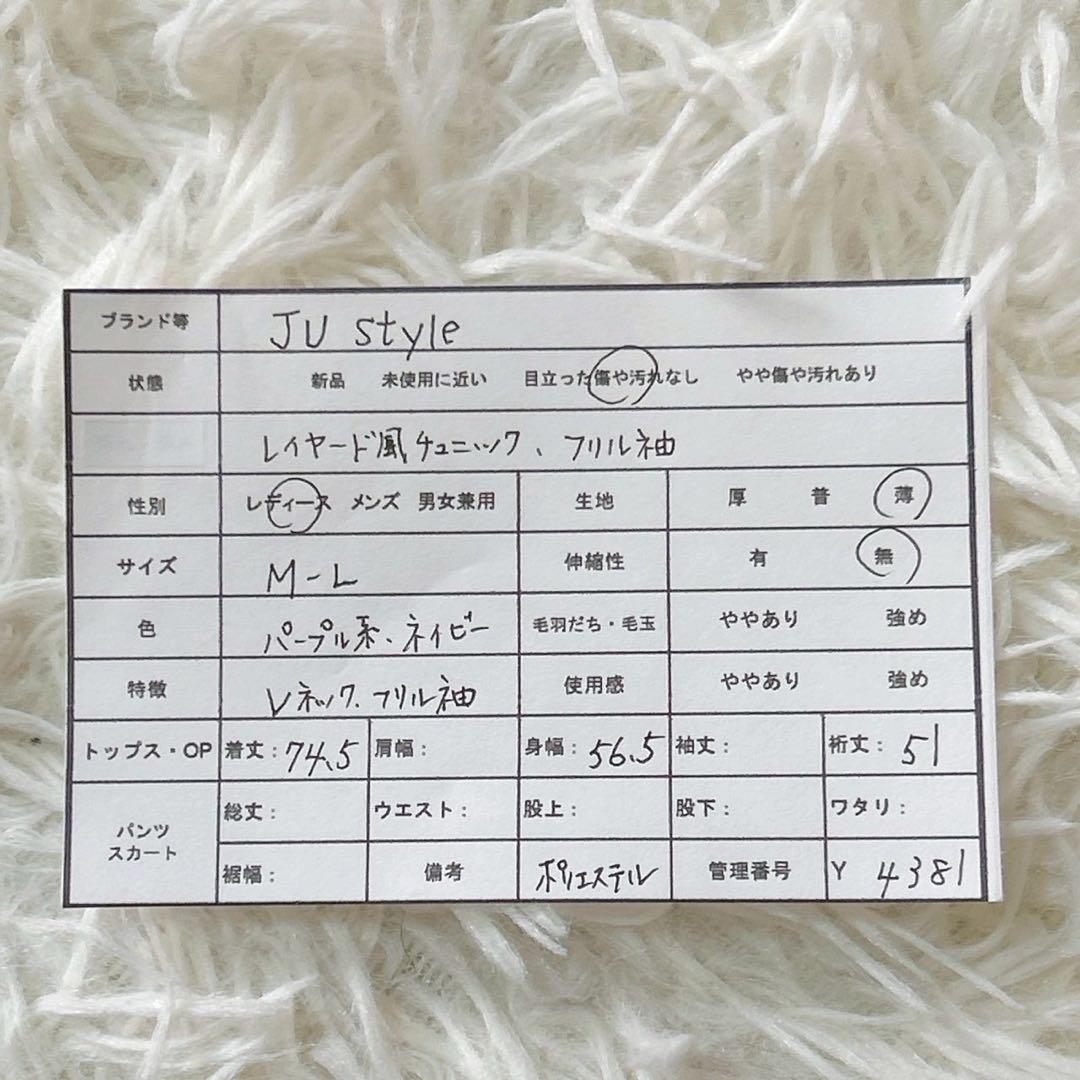 ブランド等 JU style
状態 新品 未使用に近い 目立った傷や汚れなし やや傷や汚れあり
レイヤード風チュニック、フリル袖
性別 レディース メンズ 男女兼用 生地 厚 普 薄
サイズ M-L 伸縮性 有 無
色 パープル系、ネイビー 毛羽だち・毛玉 ややあり 強め
特徴 Vネック、フリル袖 使用感 ややあり 強め
トップス・OP 着丈:74.5 肩幅: 身幅:56.5 袖丈: 裄丈:51
パンツ スカート 総丈: ウエスト: 股上: 股下: ワタリ:
裾幅: 備考 ポリエステル 管理番号 Y 4381